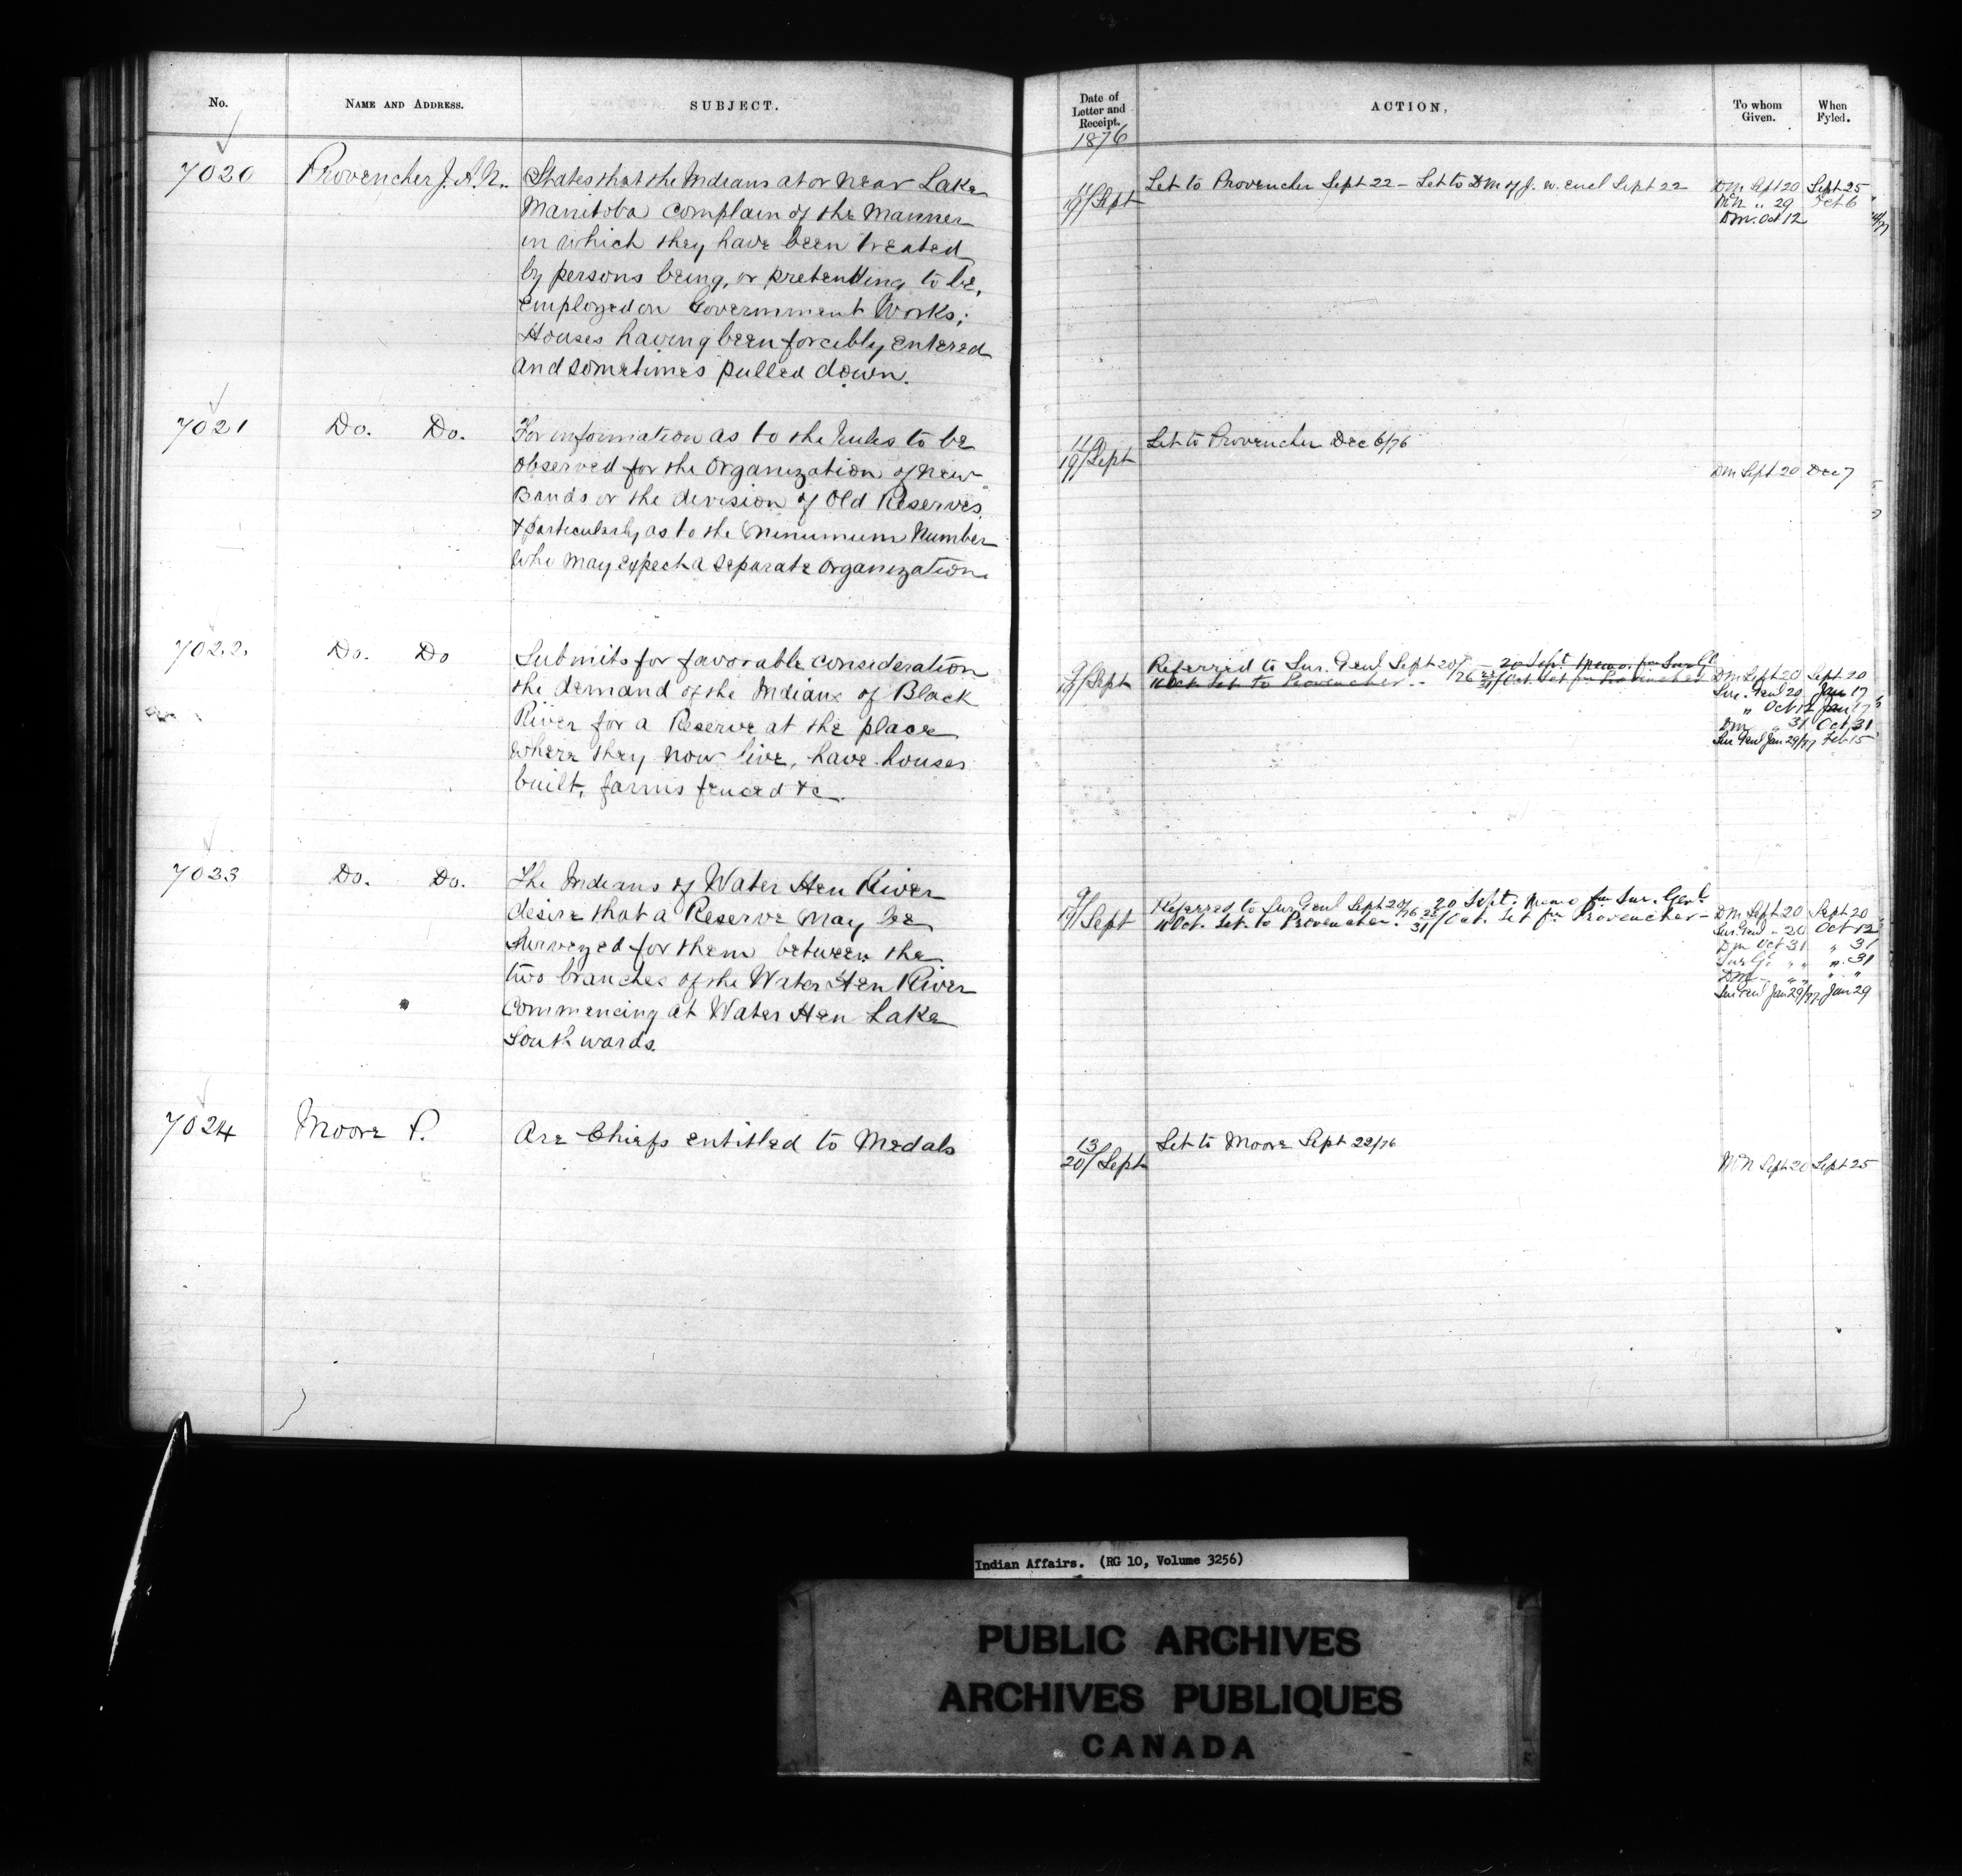 No.
NAME AND ADDRESS.
SUBJECT.
Date of
Letter and
Receipt.
1876
ACTION,
To whom
Given.
When
Fyled.
7020
Provencher J. A. N.
States that the Indians at or near Lake
Manitoba complain of the manner
in which they have been treated
by persons being, or pretending to be,
employed on Government Works;
Houses having been forcibly entered
and sometimes pulled down.
11
19/Sept
Let to Provencher Sept 22 - Let to DM of J. w. encl Sept 22
DM Sept 20 Sept 25
McN " 29 Oct 6
DM. Oct 12
7021
Do. Do.
For information as to the rules to be
observed for the Organization of new
Bands or the division of Old Reserves
& particularly as to the minumum number
who may expect a separate organization.
11
19/Sept
Let to Provencher Dec 6/76
DM Sept 20 Dec 7
7022.
Do. Do
Submits for favorable consideration
the demand of the Indians of Black
River for a Reserve at the place
where they now live, have houses
built, farms fenced &c.
9
19/Sept
Referred to Sur. Genl Sept 20/76 - 20 Sept. Memo. for Sur Gl
11 Oct. Let to Provencher. - 31/Oct. Let fm Provencher
DM Sept 20 Sept 20
Sur. Genl 20 Jan 17
" Oct 12 Jan 17
DM " 31 Oct 31
Sur Genl Jan 29/77 Feb 15
7023
Do. Do.
The Indians of Water Hen River
desire that a Reserve may be
surveyed for them between the
two branches of the Water Hen River
commencing at Water Hen Lake
Southwards.
9
19/Sept
Referred to Sur Genl Sept 20/76 20 Sept. Memo fm Sur. Genl.
11 Oct. Let. to Provencher. 31/Oct. Let fm Provencher -
DM Sept 20 Sept 20
Sur. Genl " 20 Oct 12
DM Oct 31 " 31
Sur Gl " " " 31
DM " " " "
Sur Genl Jan 29/77 Jan 29
7024
Moore P.
Are Chiefs entitled to Medals
13
20/Sept
Let to Moore Sept 22/76
McN Sept 20 Sept 25
Indian Affairs. (RG 10, Volume 3256)
PUBLIC ARCHIVES
ARCHIVES PUBLIQUES
CANADA